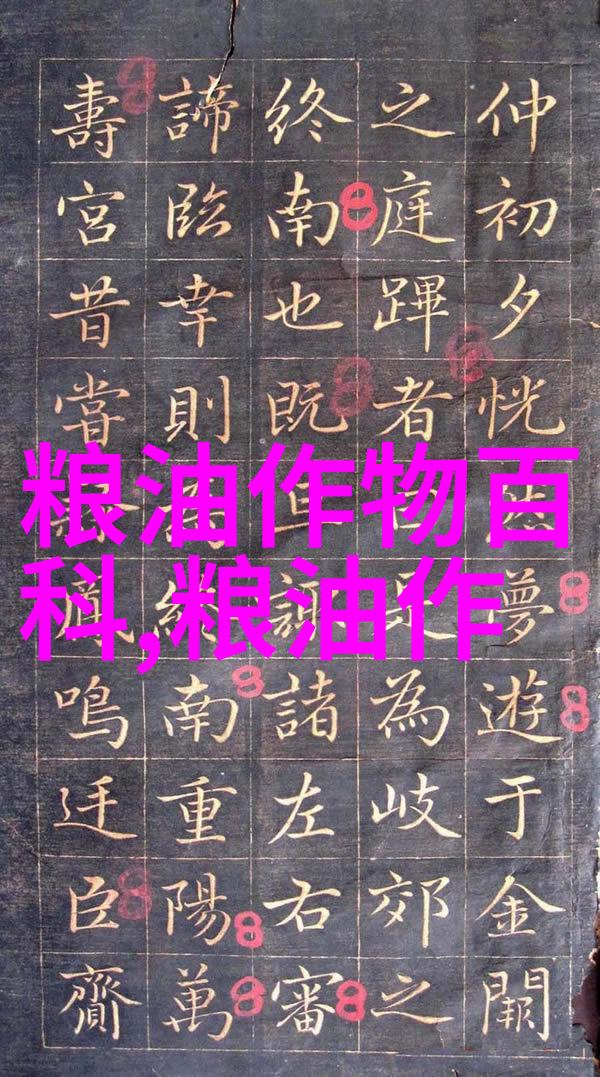 粮油作物百
科,粮油作
仲初夕恍然夢遊于金闕
之庭蹕者曰足為岐郊之
終南也既旦諏諸左右審
諦臨幸則為終南重陽萬
壽宮昔嘗鳴迋臣齎